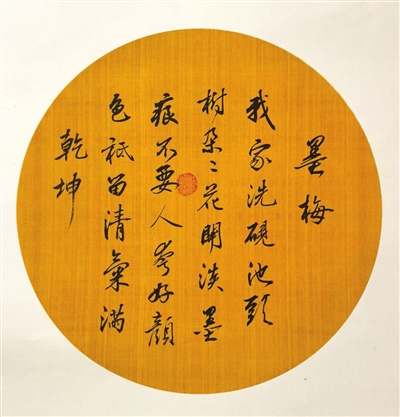 墨梅
我家洗硯池頭
樹朵〻花開淡墨
痕不要人夸好顏
色祗留清氣滿
乾坤